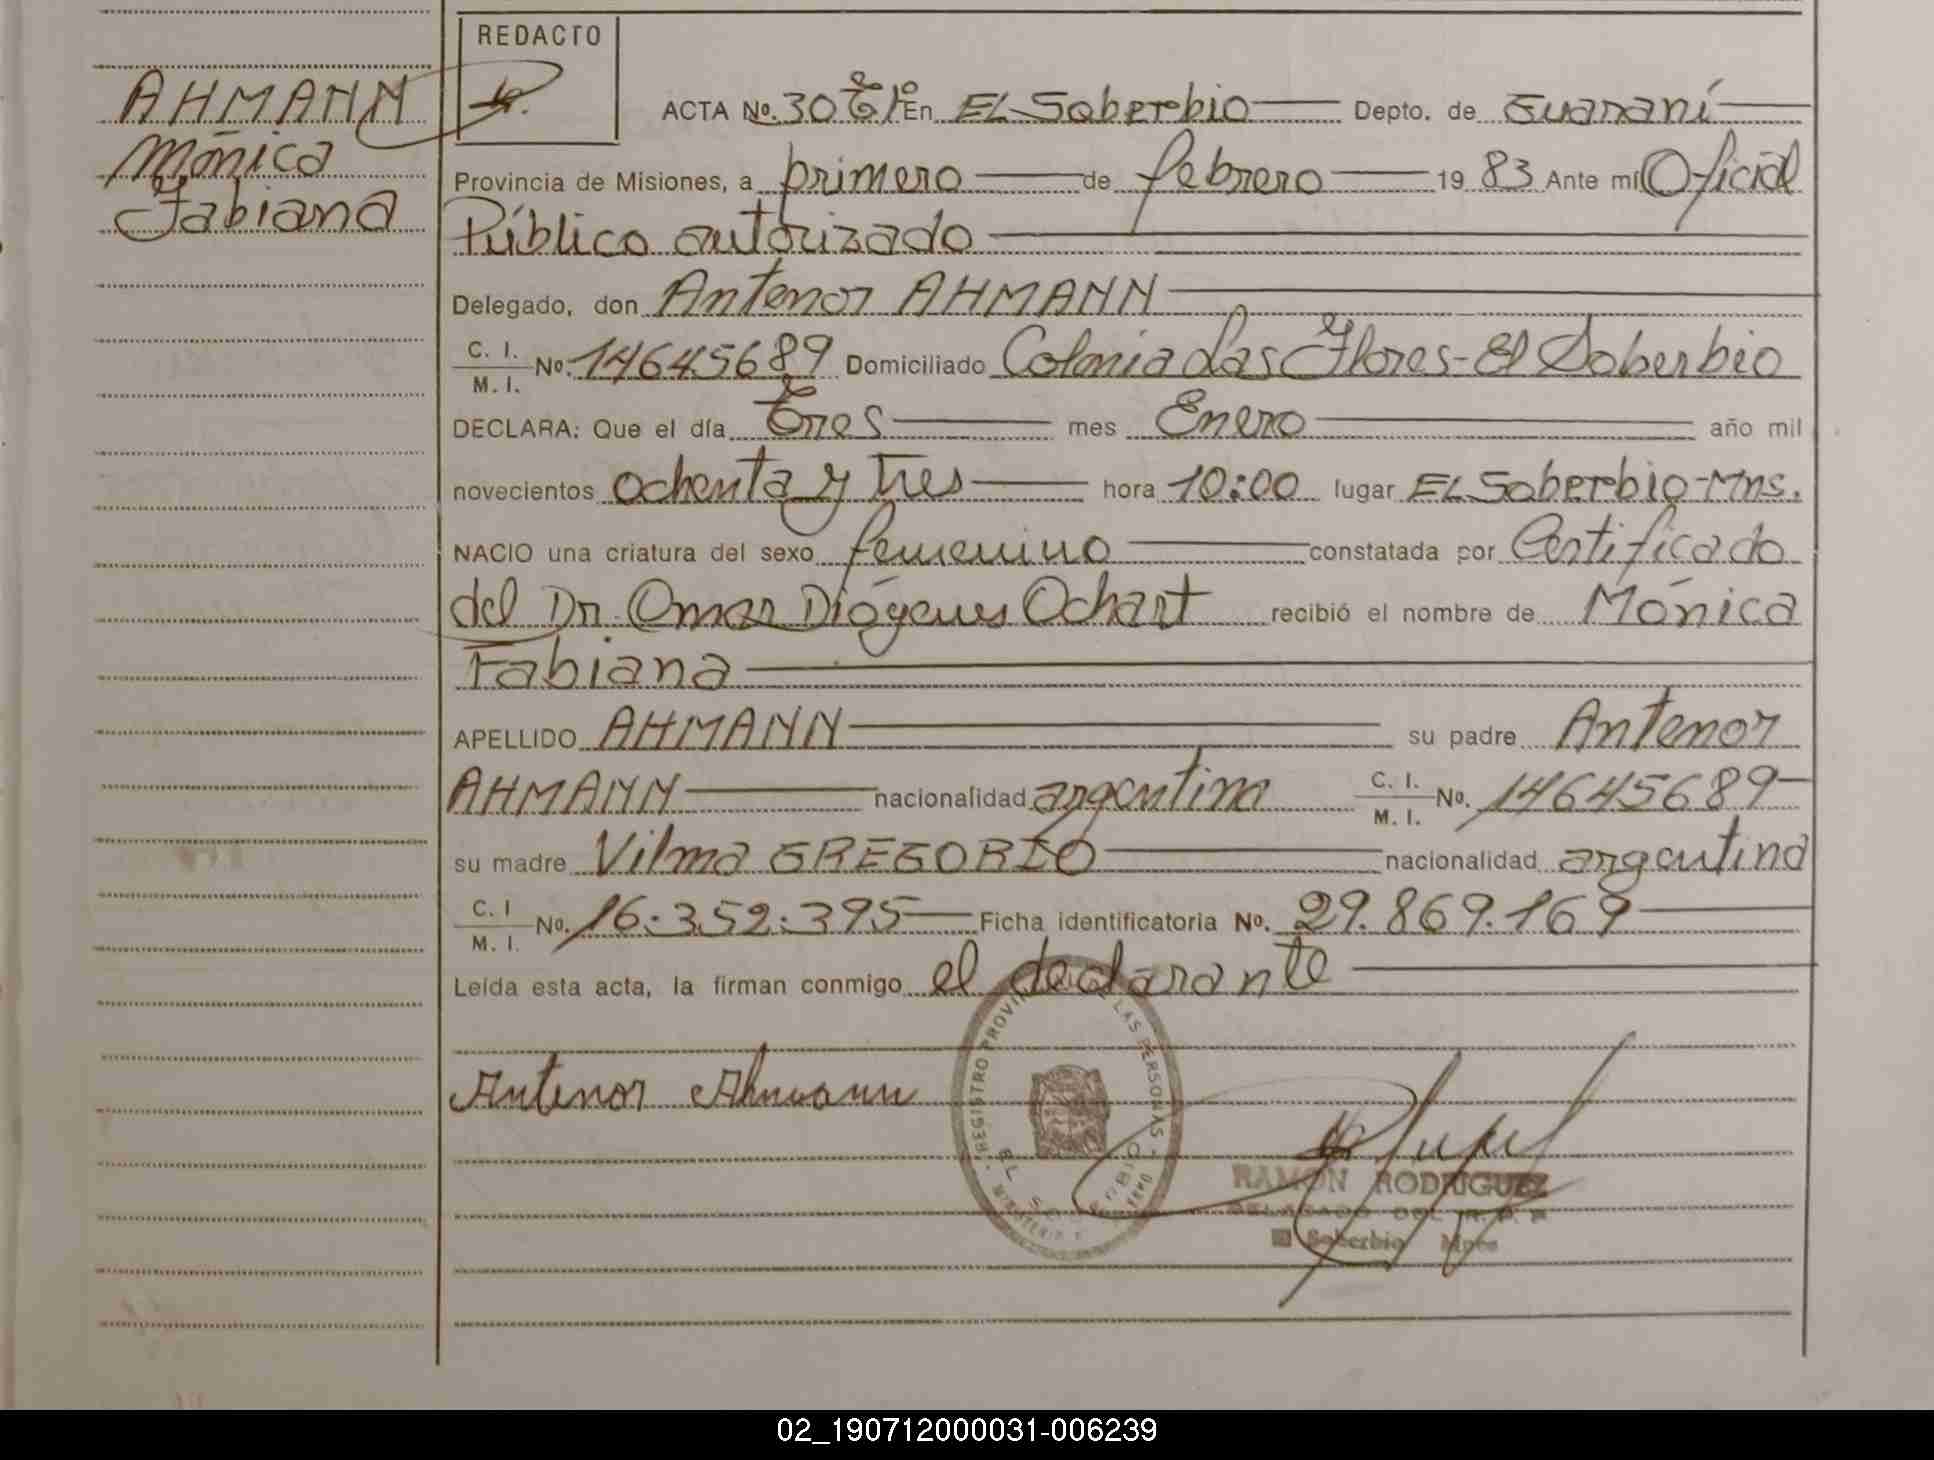 REDACTO
AHMANN
Mónica
Fabiana
ACTA No. 30 Tº1º En EL Soberbio Depto. de Guaraní
Provincia de Misiones, a primero de febrero 19 83 Ante mí Oficial
Público autorizado
Delegado, don Antenor AHMANN
C. I. M. I. No. 14645689 Domiciliado Colonia Las Flores - El Soberbio
DECLARA: Que el día Tres mes Enero año mil
novecientos ochenta y tres hora 10:00 lugar EL Soberbio-Mns.
NACIO una criatura del sexo femenino constatada por Certificado
del Dr. Omar Diógenes Ochart recibió el nombre de Mónica
Fabiana
APELLIDO AHMANN su padre Antenor
AHMANN nacionalidad argentina C. I. M. I. No. 14645689
su madre Vilma GREGORIO nacionalidad argentina
C. I M. I. No. 16.352.395 Ficha identificatoria No. 29.869.169
Leída esta acta, la firman conmigo el declarante
Antenor Ahmann
REGISTRO PROVINCIAL DE LAS PERSONAS
EL SOBERBIO
RAMON RODRIGUEZ
DELEGADO DEL R. P. P.
El Soberbio Mnes
02_190712000031-006239